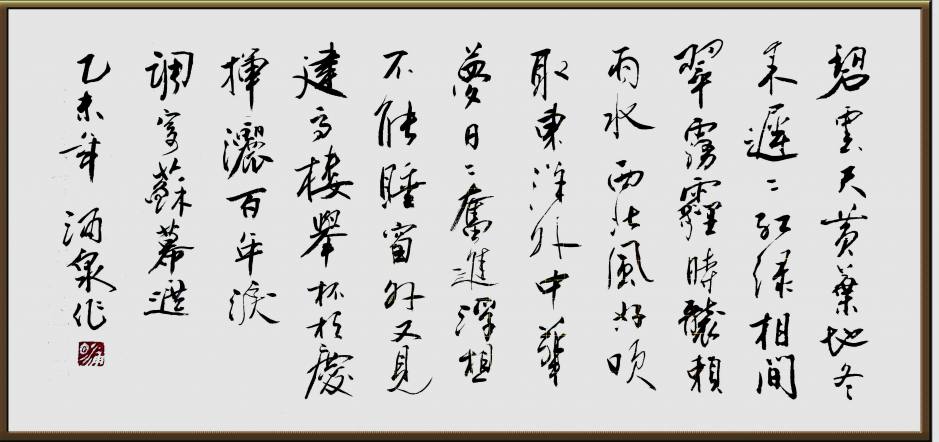 碧雲天黄葉地冬
来遲〻红绿相間
翠霧霾時賴
雨水西北風好吹
取東洋外中華
夢日〻奮進浮想
不能睡窗外又見
建高樓舉杯相慶
揮灑百年淚
調寄蘇幕遮
乙未年 酒泉作